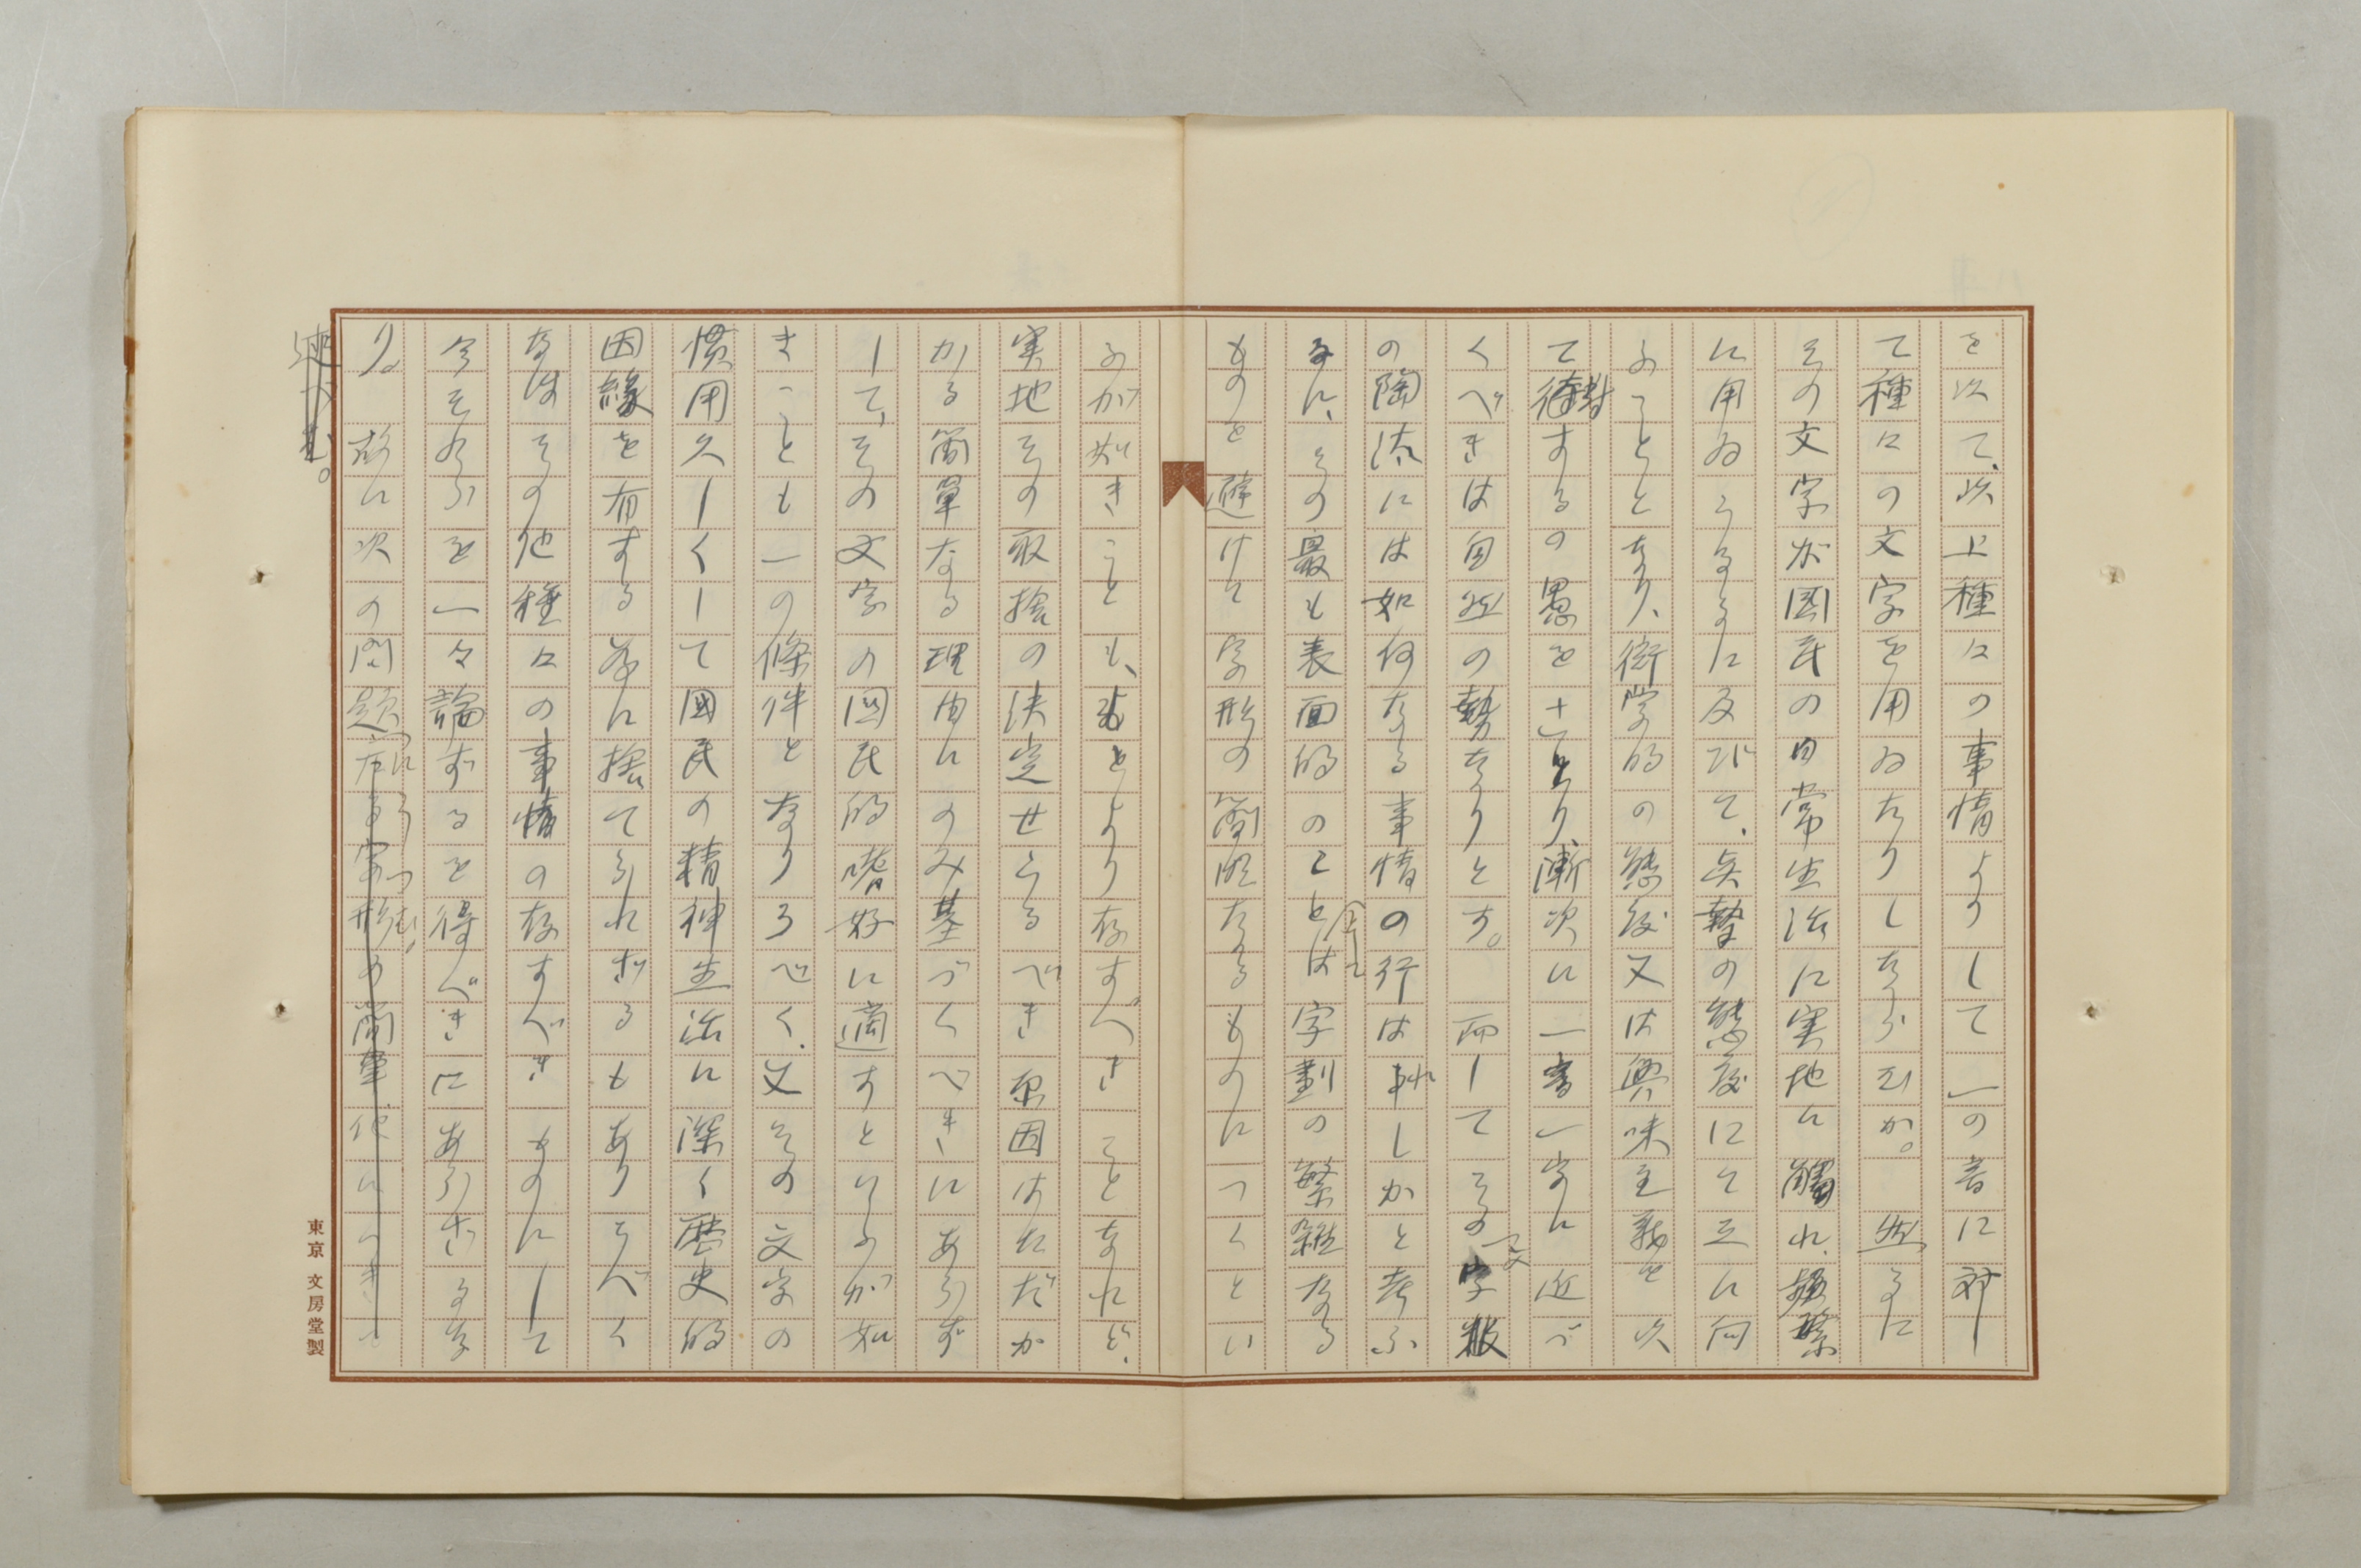 を以て、以上種々の事情よりして一の音に対し
て種々の文字を用ゐたりしならむか。然るに
その文字が国民の日常生活に実地に觸れ、頻繁
に用ゐらるるに及びて、眞摯の態度にて之に向
ふこととなり、衒学的の態度又は興味主義を以
て待対するの愚をさとり、漸次に一音一字に近づ
くべきは自然の勢なりとす。而してその文字淘汰
の陶汰には如何なる事情の行はれしかと考ふ
るに、その最も表面的のことは字劃の繁雑なる
ものを避けて字形の簡明なるものにつくとい
ふが如きことも、もとより存すべきことなれど、
実地その取捨の決定せらるべき原因はただか
かる簡単なる理由にのみ基づくべきにあらず
して、その文字の国民的嗜好に適すといふが如
きことも一の條件となりうべく、又その文字の
慣用久しくして國民の精神生活に深く歴史的
因縁を有する為に捨てられざるもありうべく
なほその他種々の事情の存すべきものにして
今それらを一々論ずるを得べきにあらざるな
り。故に次の問題にうつむ。
東京 文房堂製